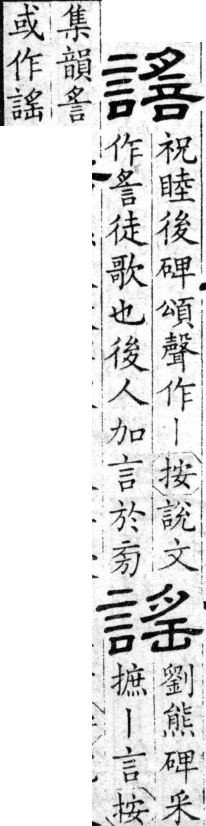 祝睦後碑頌聲作丨按說文
作䚻徒歌也後人加言於旁
謠
劉熊碑采
摭丨言按
集韻䚻
或作謠